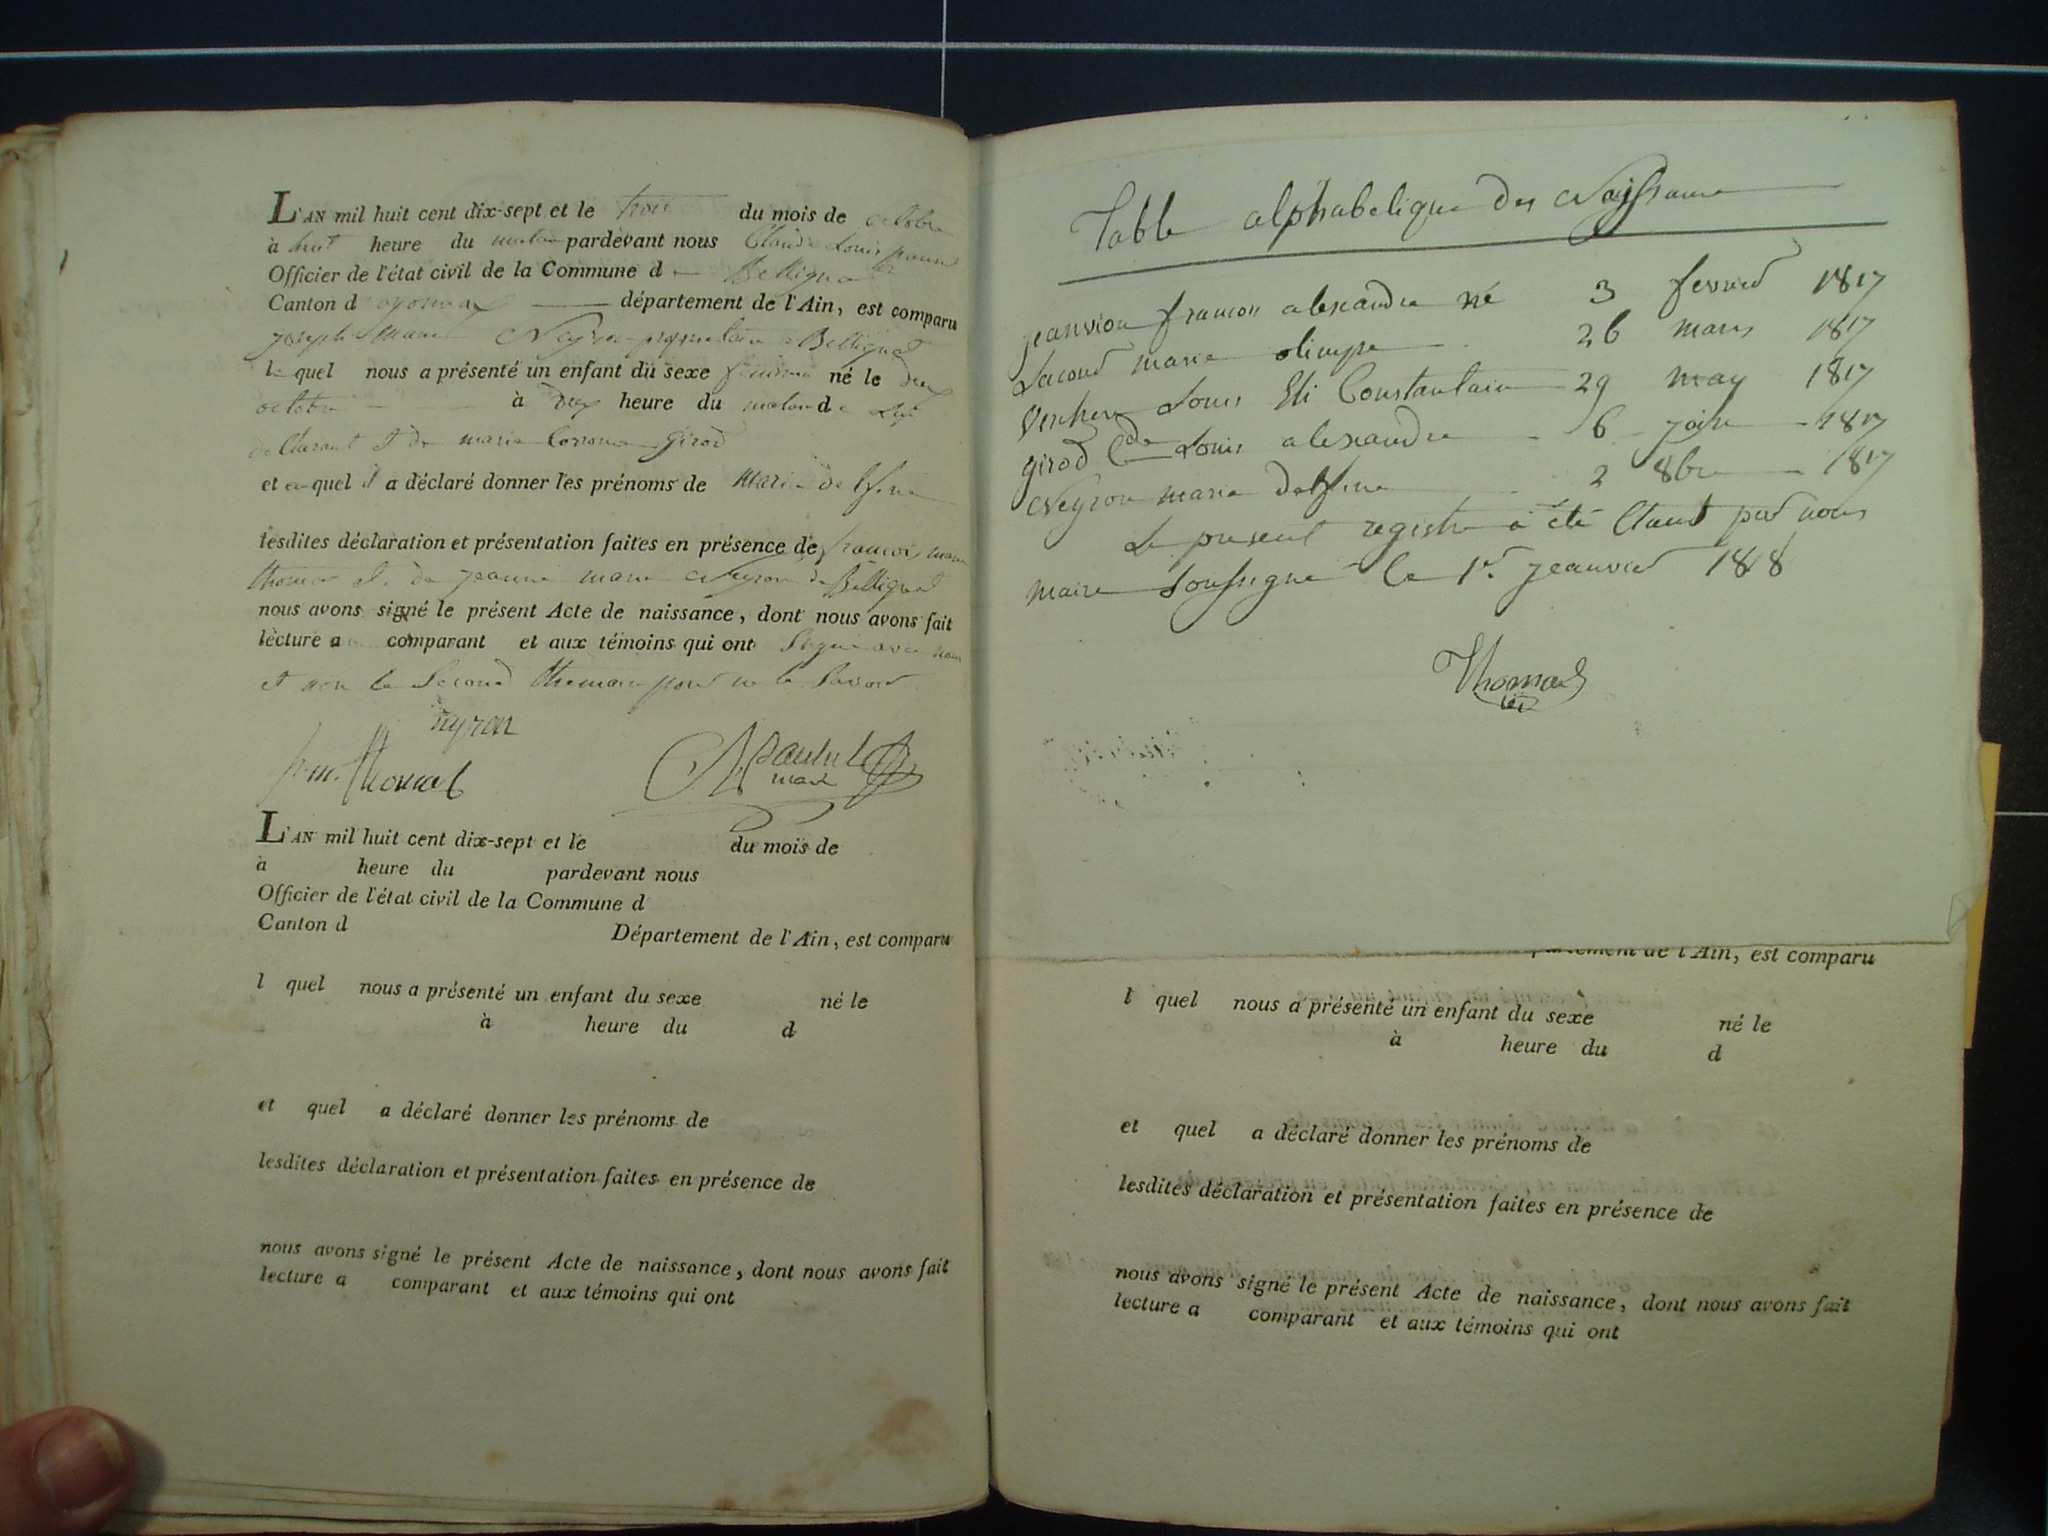 L'AN mil huit cent dix-sept et le trois du mois de octobre
à huit heure du matin pardevant nous Claude Louis
Officier de l'état civil de la Commune d Bellignat
Canton d oyonnax département de l'Ain, est comparu
joseph Marie Neyron propriétaire a Bellignat
le quel nous a présenté un enfant du sexe féminin né le deux
octobre à deux heure du matin de lui
declarant et de marie Girod
et au quel il a déclaré donner les prénoms de Marie delfine
lesdites déclaration et présentation faites en présence de francois marie
thomas et de jeanne marie Neyron de Bellignat
nous avons signé le présent Acte de naissance, dont nous avons fait
lecture au comparant et aux témoins qui ont Signé avec nous
et non le Second thémoin pour ne le Savoir
neyron
f. m. thomas
maire
L'AN mil huit cent dix-sept et le du mois de
à heure du pardevant nous
Officier de l'état civil de la Commune d
Canton d Département de l'Ain, est comparu
l quel nous a présenté un enfant du sexe né le
à heure du d
et quel a déclaré donner les prénoms de
lesdites déclaration et présentation faites en présence de
nous avons signé le présent Acte de naissance, dont nous avons fait
lecture a comparant et aux témoins qui ont
Table alphabetique des Naissance
jeanvion francois alexandre né 3 fevrier 1817
Lacour marie olimpe 26 mars 1817
Louis Eli Constantain 29 may 1817
girod Cde Louis alexandre 6 join 1817
Neyron marie Delfine 2 8bre 1817
Le present registre a été Claus par nous
maire Soussigné le 1er jeanvier 1818
Thomas
département de l'Ain, est comparu
l quel nous a présenté un enfant du sexe né le
à heure du d
et quel a déclaré donner les prénoms de
lesdites déclaration et présentation faites en présence de
nous avons signé le présent Acte de naissance, dont nous avons fait
lecture a comparant et aux témoins qui ont